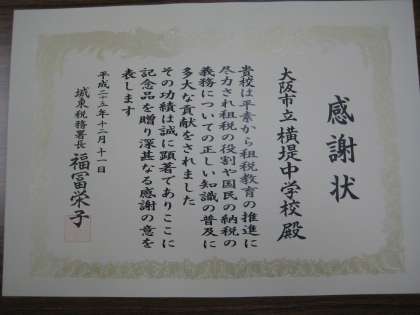 感謝状
大阪市立横堤中学校殿
貴校は平素から租税教育の推進に
尽力され租税の役割や国民の納税の
義務についての正しい知識の普及に
多大な貢献をされました
その功績は誠に顕著でありここに
記念品を贈り深甚なる感謝の意を
表します
平成二十五年十二月十一日
城東税務署長 福冨栄子